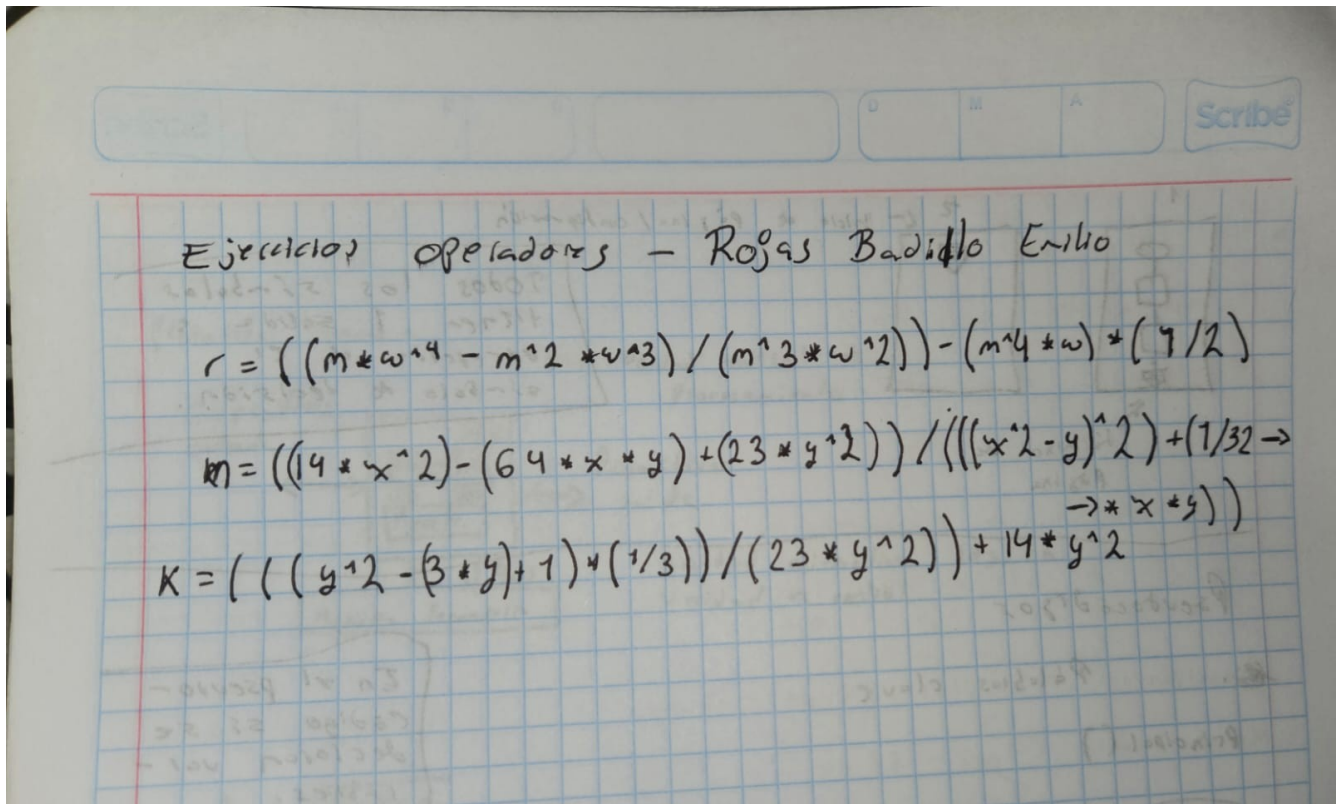 D M A Scribe
Ejercicios operadores - Rojas Badillo Emilio
r = ((m*w^4 - m^2 *w^3) / (m^3*w^2)) - (m^4 *w) * (1/2)
m = ((14 * x^2) - (64 * x * y) + (23 * y^2)) / (((x^2 - y)^2) + (1/32 →
→ * x * y))
K = (((y^2 - (3 * y) + 1) * (1/3)) / (23 * y^2)) + 14 * y^2